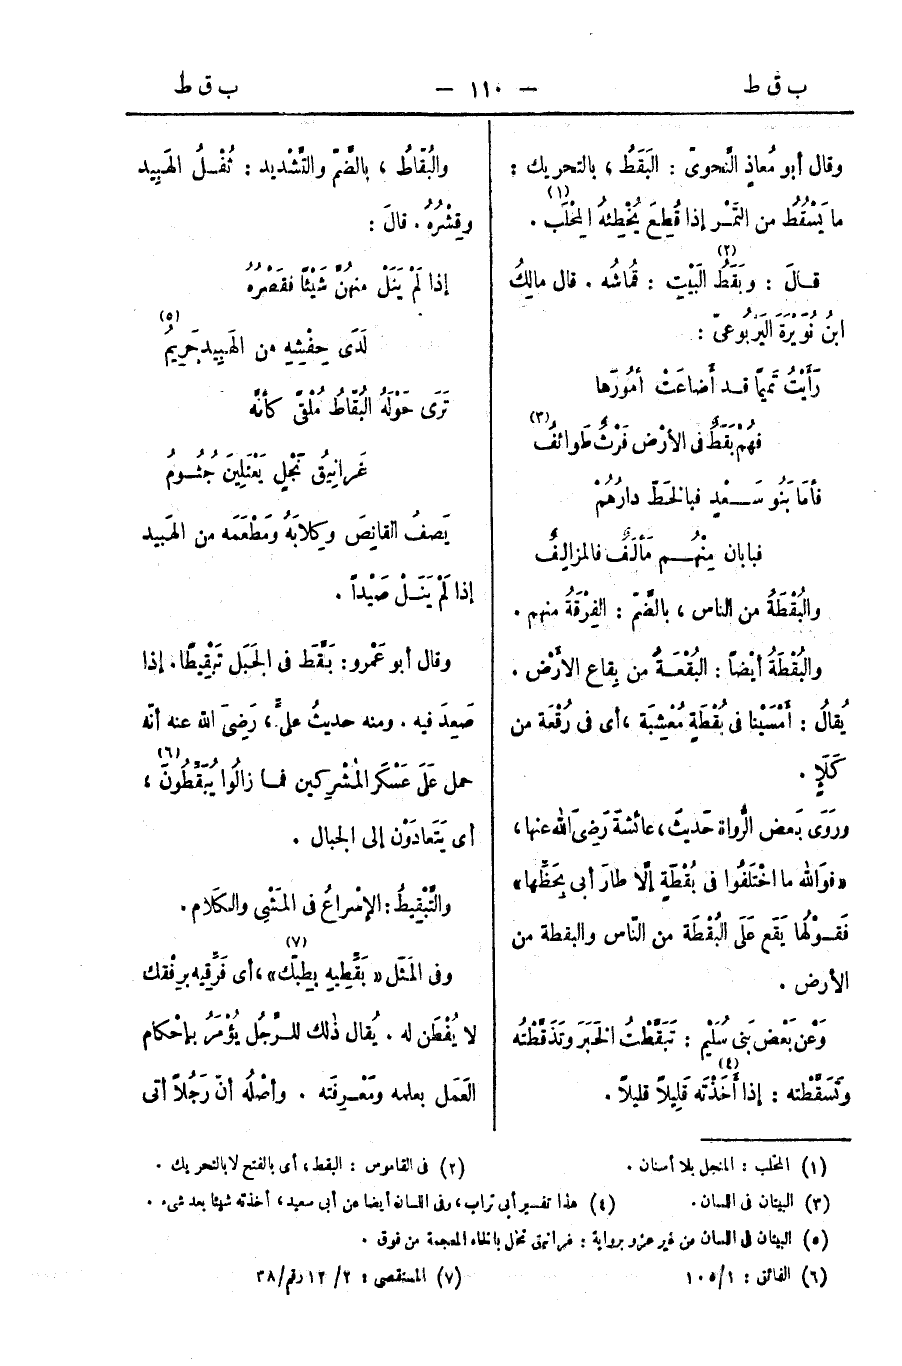 ب ق ط — ١١٠ — ب ق ط
وقال أبو مُعاذٍ النَّحوىّ : البَقَطُ ، بالتحريك :
ما يَسْقُطُ من التَّمْر إذا قُطِعَ يُخْطِئهُ المِخْلَب (١) .
قالَ : وبَقَطُ (٢) البَيْتِ : قُماشُه . قال مالِكُ
ابنُ نُوَيْرَةَ اليَرْبوعىّ :
رَأَيْتُ تَمِيماً قد أَضاعَتْ أمُورَها
فهُمْ بَقَطٌ فى الأرْضِ فَرْثٌ طَوائفُ (٣)
فأمّا بَنُو سَعْدٍ فبالخَطِّ دارُهُمْ
فبابان مِنْهُم مَأْلَفٌ فالمزالِفُ
والبُقْطَةُ من الناس ، بالضَّمّ : الفِرْقَةُ منهم .
والبُقْطَةُ أيْضاً : البُقْعَةُ من بِقاعِ الأَرْض .
يُقالُ : أَمْسَيْنا فى بُقْطَةٍ مُعْشِبَة ، أى فى رُقْعَة من
كَلَإٍ .
ورَوَى بَعض الرُّواة حَديثَ ، عائشَةَ رَضىَ الله عنها ،
«فوَالله ما اخْتَلَفُوا فى بُقْطَةٍ إلّا طارَ أبى بِحَظِّها»
فَقَوْلُها يَقَع عَلَى البُقْطَة من النّاس والبقطة من
الأرض .
وَعَن بَعْض بَنى سُلَيْم : تَبَقَّطْتُ الخَبَرَ وتَذَقَّطْتُه
وتَسَقَّطْته : إذا أَخَذْتَه (٤) قَلِيلاً قليلاً .
والبُقّاطُ ، بالضَّمّ والتَّشْديد : ثُفْلُ الهَبِيد
وقِشْرُهُ . قالَ :
إذا لَمْ يَنَلْ منهنَّ شَيْئًا فقَصْرُهُ
لَدَى حِفْشِهِ من الهَبِيدِ جَرِيمُ (٥)
تَرَى حَوْلَهُ البُقّاطُ مُلْقًى كأنَّه
غَرانِيقُ نَجْلٍ يَعْتَلِينَ جُثُومُ
يَصفُ القانِصَ وكِلابَهُ ومَطْعَمَه من الهَبيد
إذا لَمْ يَنَلْ صَيْداً .
وقال أبو عَمْرو : بَقَّط فى الجَبَل تَبْقِيطًا . إذا
صَعِدَ فيه . ومنه حديثُ علىٍّ ، رَضِىَ الله عنه أنّه
حمل عَلَى عَسْكَر المُشْرِكين فما زالُوا يُبَقِّطُونَ (٦) ،
أى يَتَعادَوْن إلى الجبال .
والتَّبْقِيطُ : الإسْراعُ فى المَشْىِ والكلام .
وفى المَثَل « بَقِّطِيهِ بِطِبّك (٧) » ، أى فَرِّقِيه برِفْقك
لا يُفْطَن له . يُقال ذٰلك للرَّجُل يُؤْمَرُ بإحْكام
العَمَل بعلمه ومَعْرِفَته . وأصْلُه أنّ رَجُلاً أتى
(١) المخلب : المنجل بلا أسنان .
(٢) فى القاموس : البقط ، أى بالفتح لا بالتحريك .
(٣) البيتان فى اللسان .
(٤) هذا تفسير أبى تراب ، وفى اللسان أيضا عن أبى سعيد ، أخذته شيئا بعد شىء .
(٥) البيتان فى اللسان من غير عزو برواية : غرانيق نخل بالخاء المعجمة من فوق .
(٦) الفائق : ١٠٥/١
(٧) المستقصى : ٢/ ١٢ رقم/ ٣٨